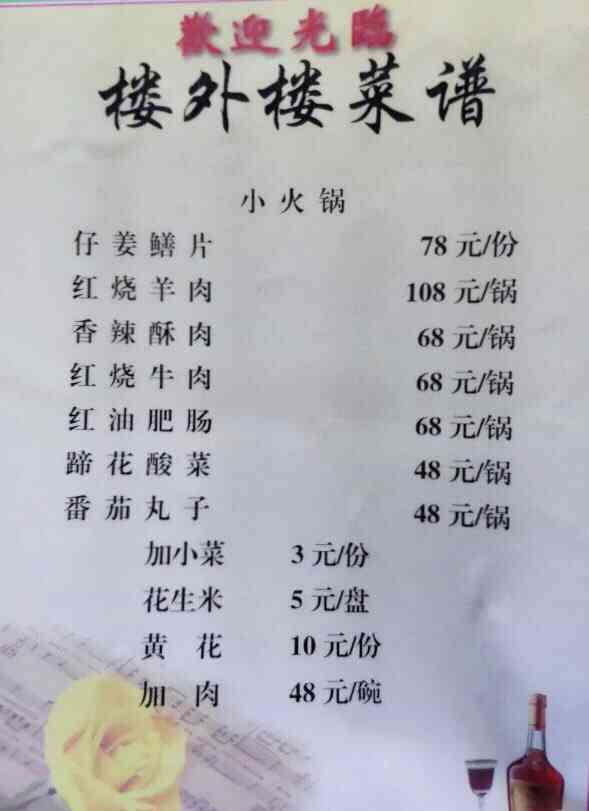 歡迎光臨
楼外楼菜谱
小火锅
仔姜鳝片 78元/份
红烧羊肉 108元/锅
香辣酥肉 68元/锅
红烧牛肉 68元/锅
红油肥肠 68元/锅
蹄花酸菜 48元/锅
番茄丸子 48元/锅
加小菜 3元/份
花生米 5元/盘
黄花 10元/份
加肉 48元/碗